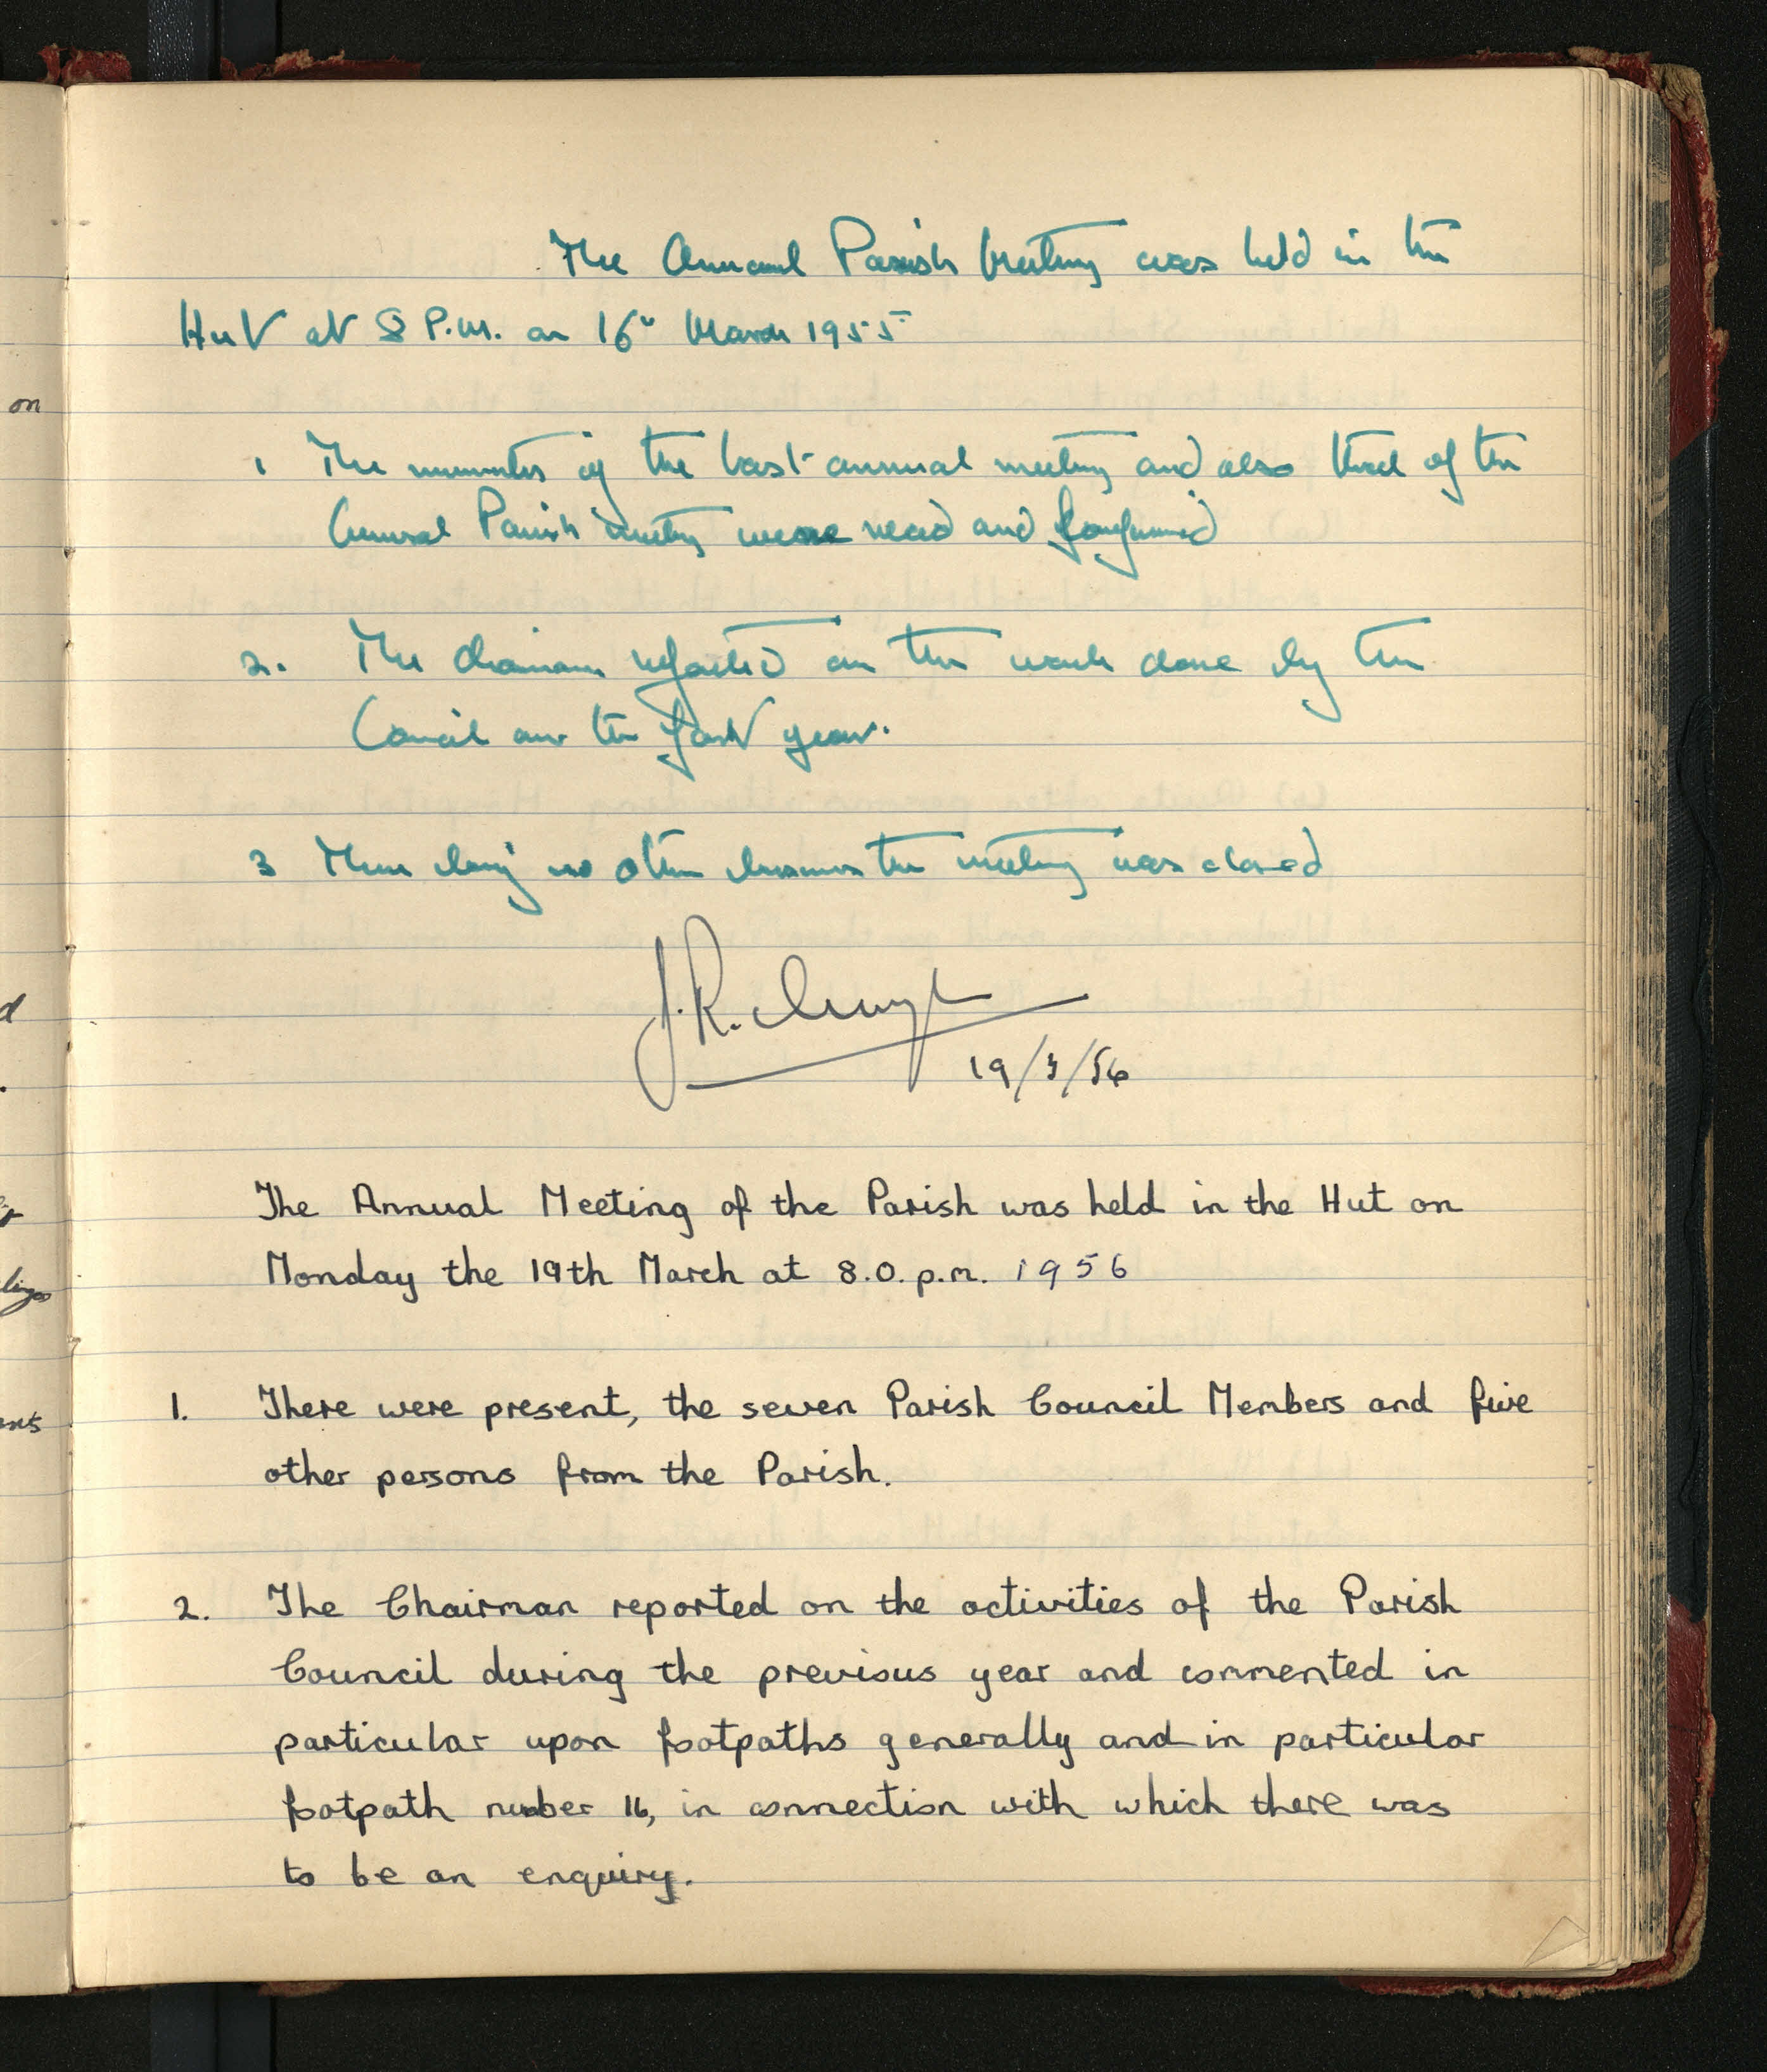 The Annual Parish Meeting was held in the
Hut at 8 P.M. on 16th March 1955
1 The minutes of the last annual meeting and also that of the
General Parish Meeting were read and confirmed
2. The chairman reported on the work done by the
Council over the past year.
3 There being no other business the meeting was closed
J.R.
19/3/56
The Annual Meeting of the Parish was held in the Hut on
Monday the 19th March at 8.0. p.m. 1956
1. There were present, the seven Parish Council Members and five
other persons from the Parish.
2. The Chairman reported on the activities of the Parish
Council during the previous year and commented in
particular upon footpaths generally and in particular
footpath number 16, in connection with which there was
to be an enquiry.
on